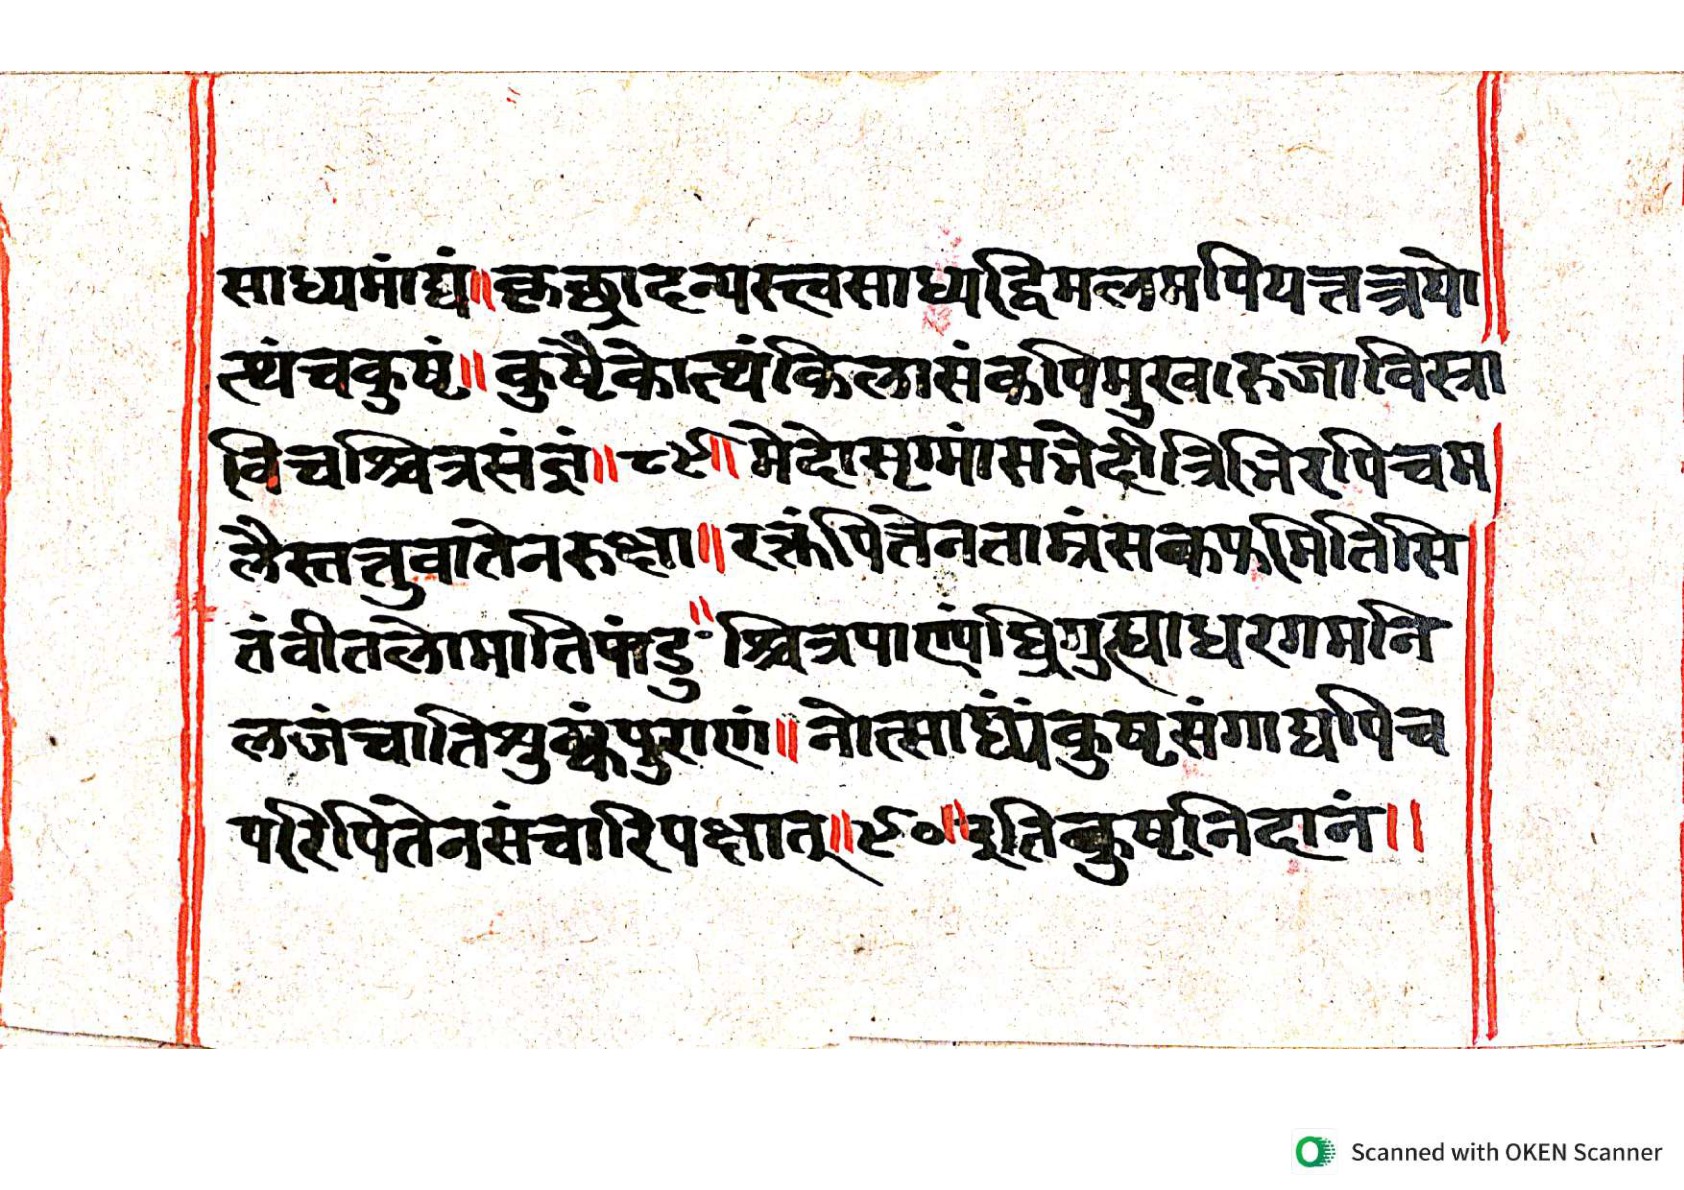 साध्यमांद्यं॥कृछ्रादन्यस्त्वसाध्यद्विमलमपियत्तत्रयो
त्थंचकुष्टं॥कुष्टैकोत्थंकिलासंकपिमुखारुजाविस्त्रा
विचश्चित्रसंज्ञं॥८९॥मेदोसृग्मांसभेदीत्रिभिरपिचम
लैस्तत्रुवातेनरुक्षा॥रक्तंपित्तेनताम्रंसकफमितिसि
तंवीतलोमातिपांडु॥श्चित्रपाएपंघ्रिगुह्याधरगमनि
लजंचातिशुक्लंपुराणं॥नोत्साध्यंकुष्टसंगाद्यपिच
परिपितेनसंचारिपक्षात्॥९०॥इतिकुष्टनिदानं॥
Scanned with OKEN Scanner